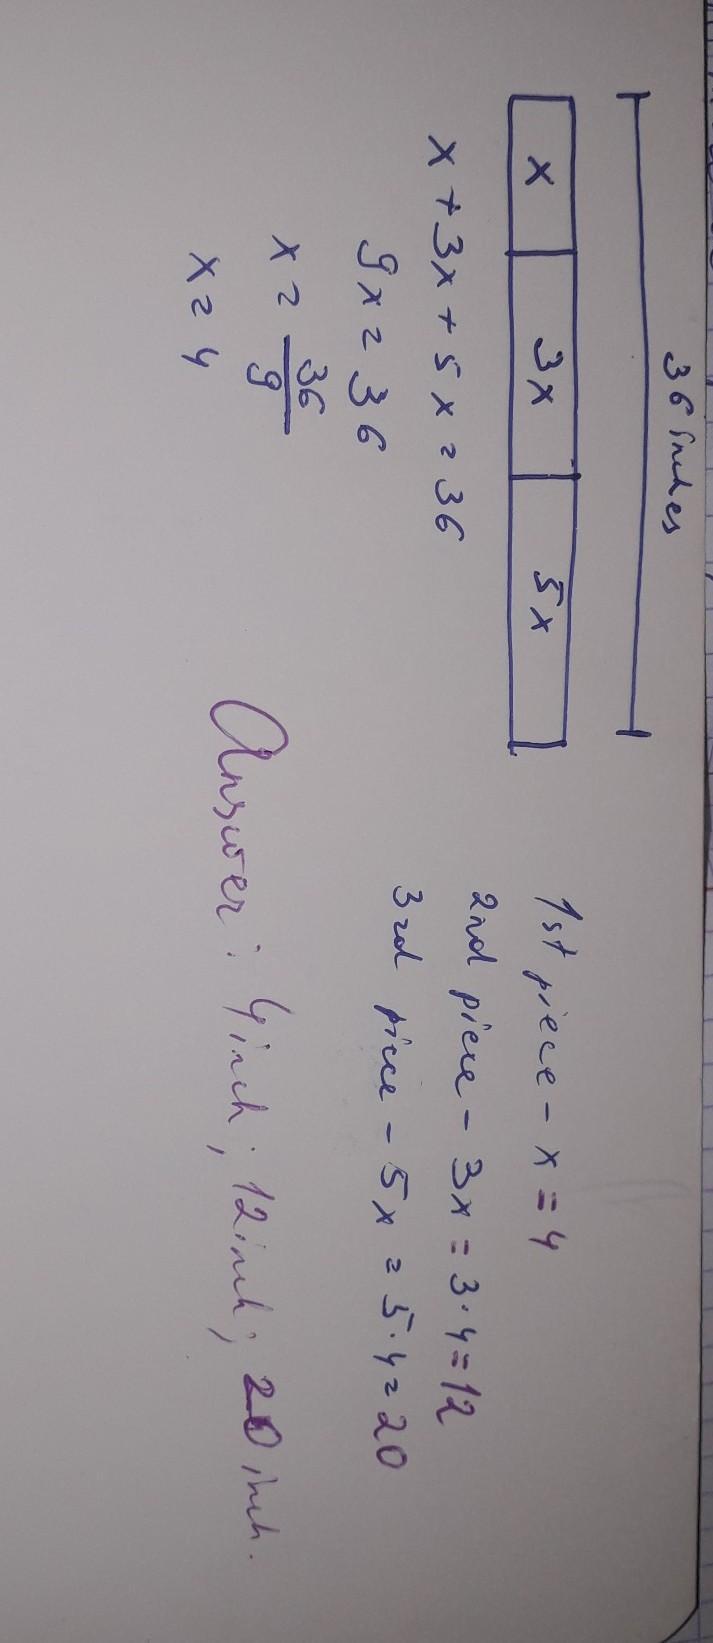 36 inches
x 3x 5x
x + 3x + 5x = 36
9x = 36
x = 36/9
x = 4
1st piece - x = 4
2nd piece - 3x = 3·4 = 12
3rd piece - 5x = 5·4 = 20
Answer: 4 inch; 12 inch; 20 inch.